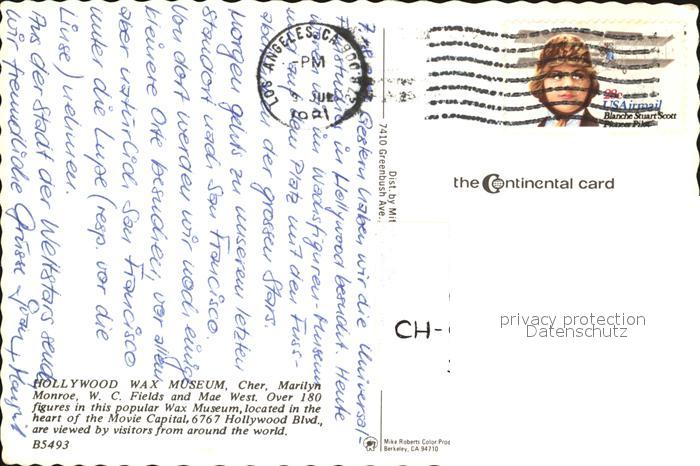 LOS ANGELES, CA 900
PM
28c
USAirmail
Blanche Stuart Scott
Pioneer Pilot
the Continental card
privacy protection
Datenschutz
CH-
Dist. by Mit
7410 Greenbush Ave.,
Gestern haben wir die Universal-
in Hollywood besucht. Heute
waren wir im Wachsfiguren-Museum
und auf dem Platz mit den Fuss-
der grossen Stars.
Morgen gehts zu unserem letzten
Standort nach San Francisco.
Von dort werden wir noch einige
kleinere Orte besuchen, vor allem
aber natürlich San Francisco
unter die Lupe (resp. vor die
Linse) nehmen.
Aus der Stadt der Weltstars senden
wir freundliche Grüsse
HOLLYWOOD WAX MUSEUM, Cher, Marilyn
Monroe, W. C. Fields and Mae West. Over 180
figures in this popular Wax Museum, located in the
heart of the Movie Capital, 6767 Hollywood Blvd.,
are viewed by visitors from around the world.
B5493
Mike Roberts Color Prod
Berkeley, CA 94710